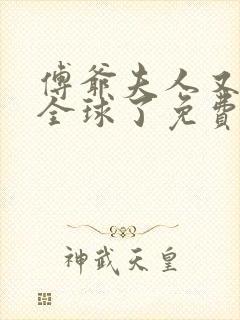 傅爺夫人又
全球了免費
神武天皇